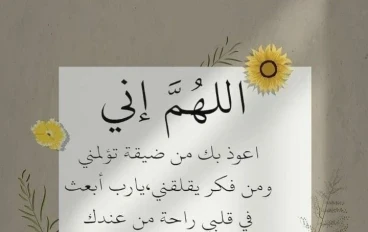 اللهُمَّ إني
اعوذ بك من ضيقة تؤلمني
ومن فكر يقلقني،يارب أبعث
في قلبي راحة من عندك